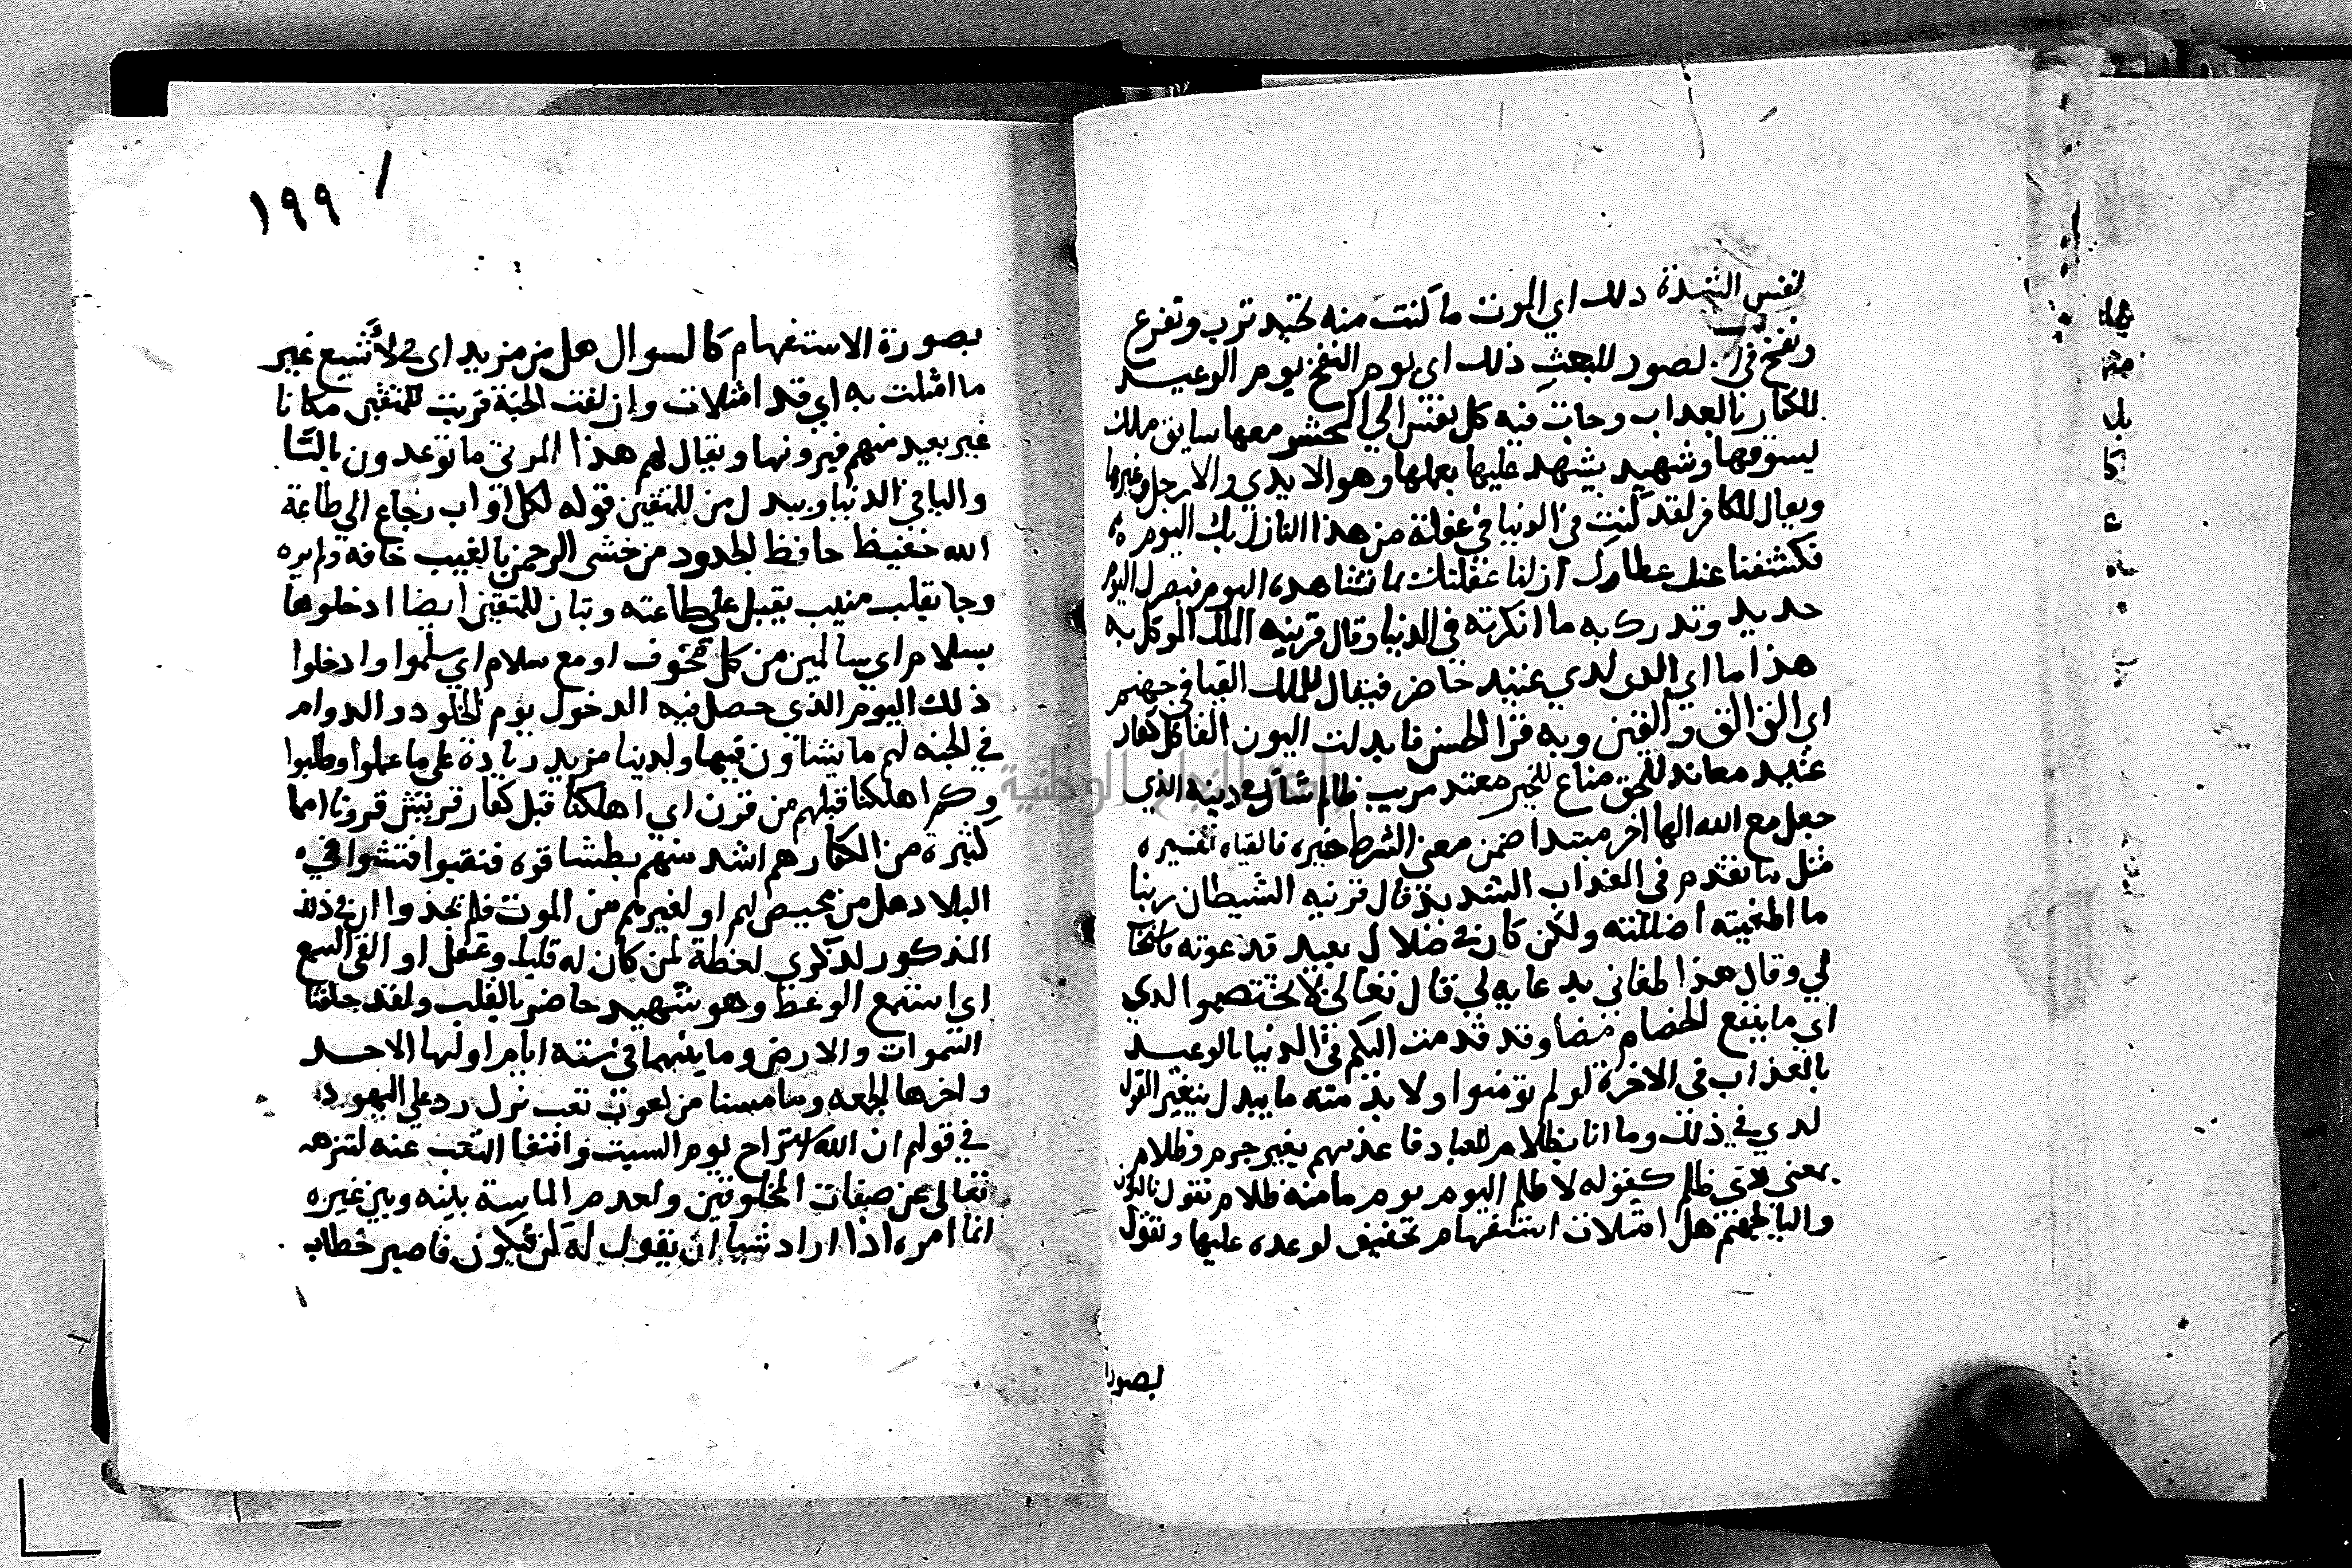 نفس الشدة ذلك اي الموت ما كنت منه تحيد تهرب وتفزع
ونفخ في الصور للبعث ذلك اي يوم النفخ يوم الوعيد
للكفار بالعذاب وجات فيه كل نفس الي المحشر معها سايق ملك
يسوقها وشهيد يشهد عليها بعملها وهو الايدي والارجل وغيرها
ويقال للكافر لقد كنت في الدنيا في غفلة من هذا النازل بك اليوم
فكشفنا عنك غطاءك ازلنا غفلتك بما تشاهده اليوم فبصرك اليوم
حديد وتدرك به ما انكرته في الدنيا وقال قرينه الملك الموكل به
هذا ما اي الذي لدي عتيد حاضر فيقال للملك القيا في جهنم
اي الق الق والقين وبه قرا الحسن فابدلت النون الفا كل كفار
عنيد معاند للحق مناع للخير معتد مريب ظالم شاك في دينه الذي
جعل مع الله الها اخر مبتدا ضمن معني الشرط خبره فالقياه تفسيره
مثل ما تقدم في العذاب الشديد قال قرينه الشيطان ربنا
ما اطغيته اضللته ولكن كان في ضلال بعيد فدعوته فاستجاب
لي وقال هذا طغاني بدعايه لي قال تعالي لا تختصموا لدي
اي ما ينفع الخصام هنا وقد قدمت اليكم في الدنيا بالوعيد
بالعذاب في الاخرة لو لم تومنوا ولا بد منه ما يبدل يتغير القول
لدي في ذلك وما انا بظلام للعباد فاعذبهم بغير جرم وظلام
بمعني ذي ظلم كقوله لا ظلم اليوم يوم ما منه ظلام نقول بالنون
واليا لجهنم هل امتلات استفهام تحقيق لوعده عليها وتقول
بصورة
١٩٩
بصورة الاستفهام كالسوال هل من مزيد اي في لا تسع غير
ما امتلت به اي قد امتلات وازلفت الجنة قربت للمتقين مكانا
غير بعيد منهم فيرونها ويقال لهم هذا المرئي ما توعدون بالتا
واليا في الدنيا ويبدل من للمتقين قوله لكل اواب رجاع الي طاعة
الله حفيظ حافظ لحدود من خشي الرحمن بالغيب خافه ولم يره
وجا بقلب منيب يقبل علي طاعته ويقال للمتقين ايضا ادخلوها
بسلام اي سالمين من كل مخوف او مع سلام اي سلموا وادخلوا
ذلك اليوم الذي حصل فيه الدخول يوم الخلود والدوام
في الجنه لهم ما يشاون فيها ولدينا مزيد زيادة علي ما عملوا وطلبوا
وكم اهلكنا قبلهم من قرن اي اهلكنا قبل كفار قريش قرونا امما
كثيرة من الكفار هم اشد منهم بطشا قوه فنقبوا فتشوا في
البلاد هل من محيص لهم او لغيرهم من الموت فلم يجدوا ان في ذلك
المذكور لذكري لعظة لمن كان له قلب وعقل او القي السمع
اي استمع الوعظ وهو شهيد حاضر بالقلب ولقد خلقنا
السموات والارض وما بينهما في ستة ايام اولها الاحد
واخرها الجمعه وما مسنا من لغوب تعب نزل رد علي اليهود
في قولهم ان الله استراح يوم السبت وانتفا التعب عنه لتنزهه
تعالي عن صفات المخلوقين ولعدم المماسة بينه وبين غيره
انما امره اذا اراد شيا ان يقول له كن فيكون فاصبر خطاب